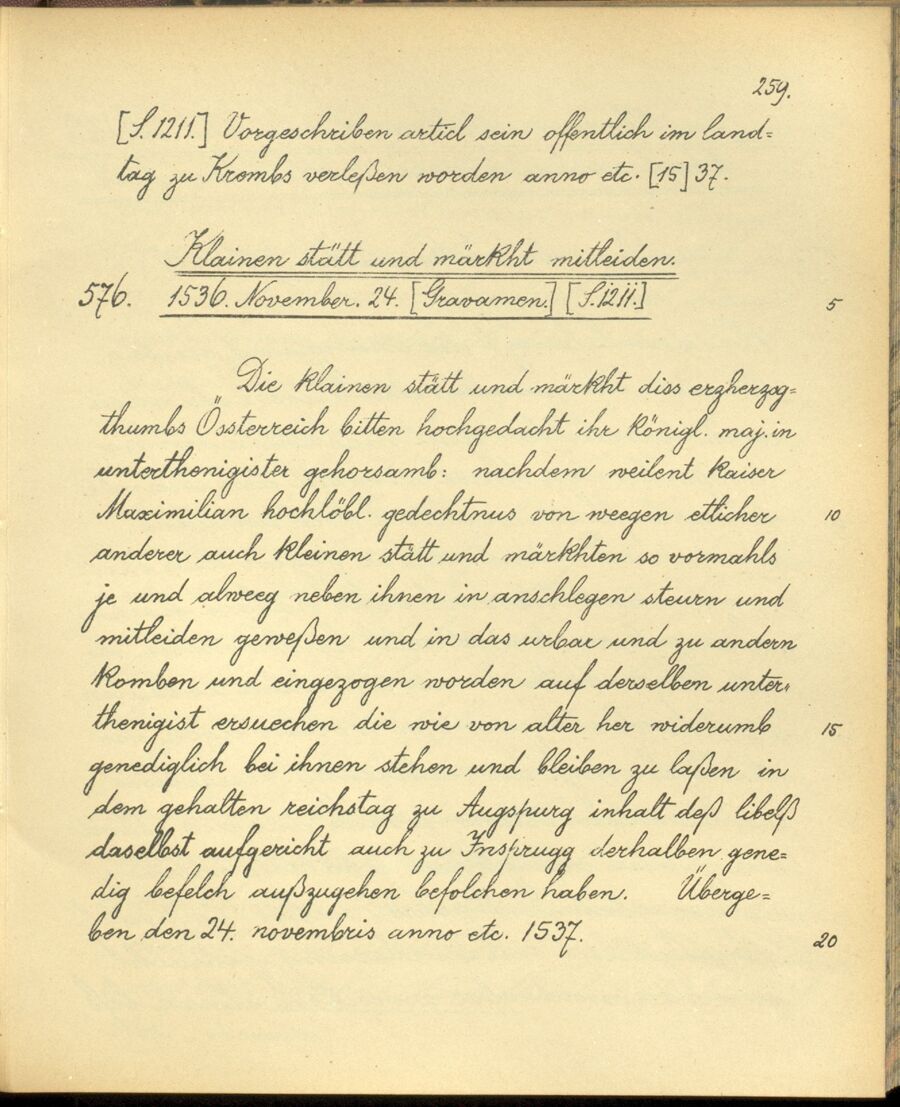 259.
[S. 1211.] Vorgeschriben articl sein offentlich im land=
tag zu Krembs verleßen worden anno etc. [15] 37.
Klainen stätt und märkht mitleiden.
576. 1536. November. 24. [Gravamen.] [S. 1211.]
5
Die klainen stätt und märkht diss erzherzog=
thumbs Össterreich bitten hochgedacht ihr königl. maj. in
unterthenigister gehorsamb: nachdem weilent kaiser
Maximilian hochlöbl. gedechtnus von weegen etlicher 10
anderer auch kleinen stätt und märkhten so vormahls
je und alweeg neben ihnen in anschlegen steurn und
mitleiden geweßen und in das urbar und zu andern
komben und eingezogen worden auf derselben unter=
thenigist ersuechen die wie von alter her widerumb 15
genediglich bei ihnen stehen und bleiben zu laßen in
dem gehalten reichstag zu Augspurg inhalt deß libelß
daselbst aufgericht auch zu Insprugg derhalben gene=
dig befelch außzugehen befolchen haben. Überge=
ben den 24. novembris anno etc. 1537. 20